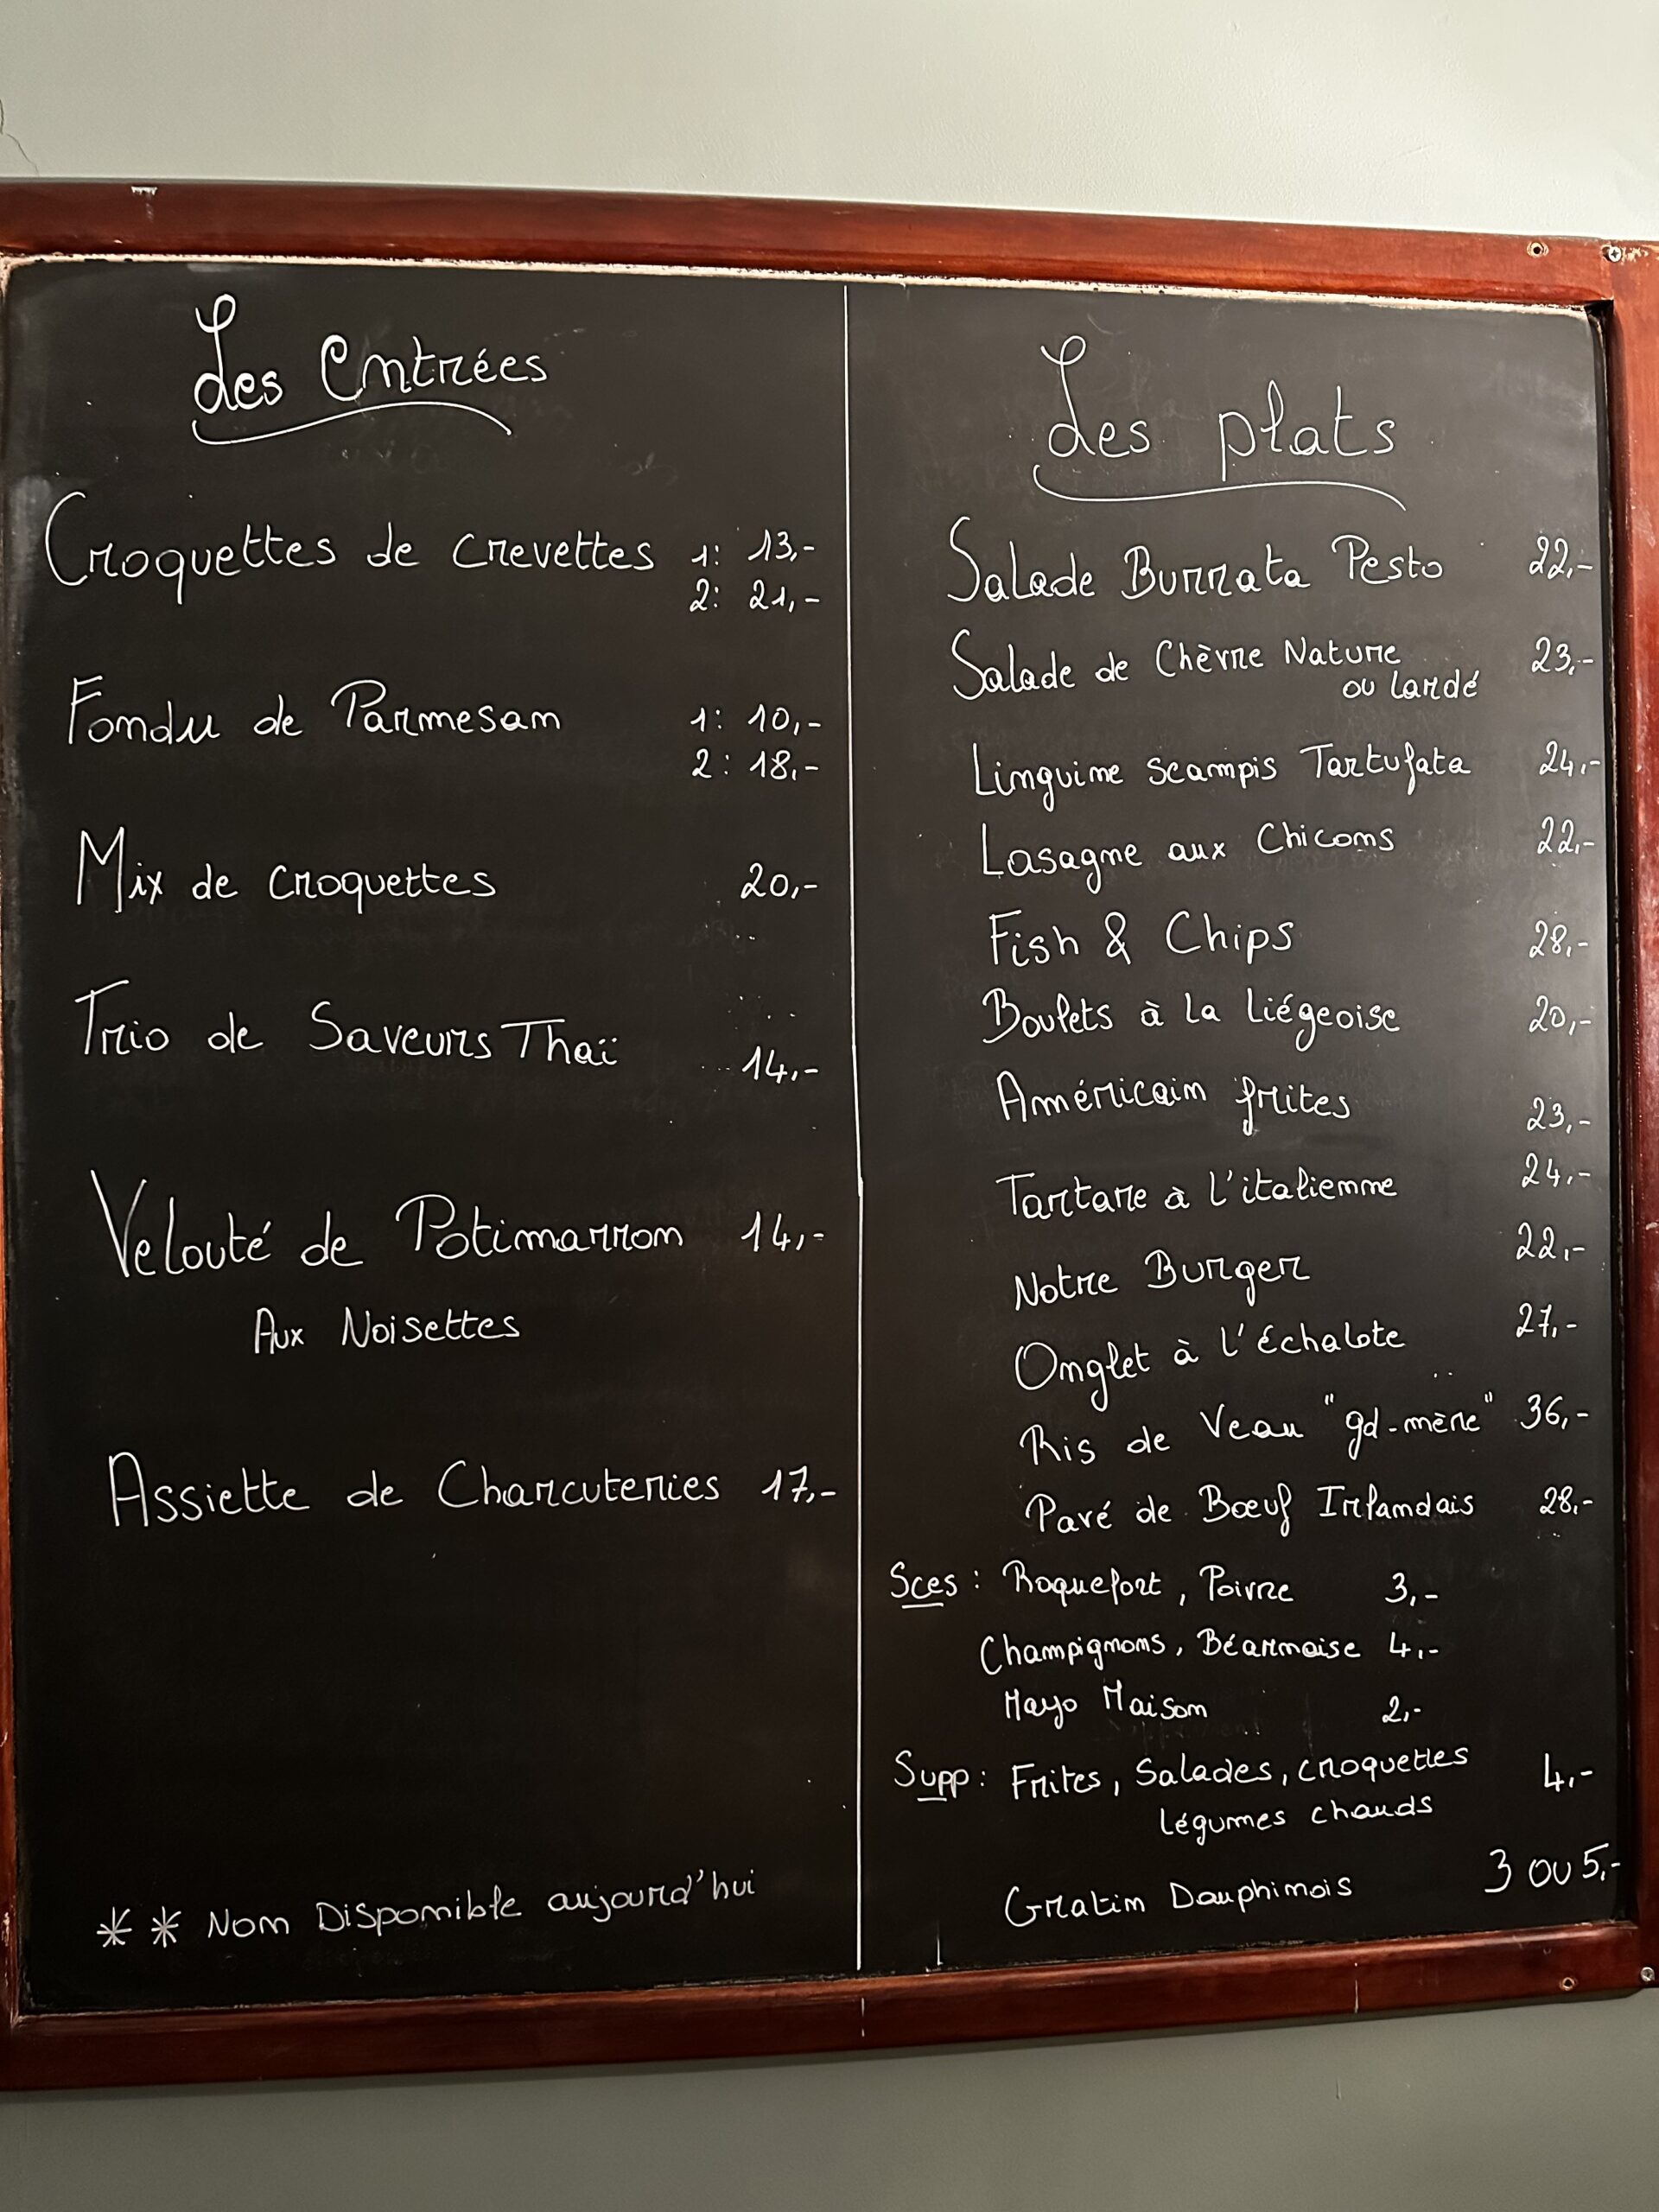 Les Entrées
Croquettes de crevettes 1: 13,-
2: 21,-
Fondu de Parmesan 1: 10,-
2: 18,-
Mix de croquettes 20,-
Trio de Saveurs Thaï 14,-
Velouté de Potimarron 14,-
Aux Noisettes
Assiette de Charcuteries 17,-
** Non Disponible aujourd'hui
Les plats
Salade Burrata Pesto 22,-
Salade de Chèvre Nature 23,-
ou lardé
Linguine scampis Tartufata 24,-
Lasagne aux Chicons 22,-
Fish & Chips 28,-
Boulets à la Liégeoise 20,-
Américain frites 23,-
Tartare à l'italienne 24,-
Notre Burger 22,-
Onglet à l'échalote 27,-
Ris de Veau "gd-mère" 36,-
Pavé de Bœuf Irlandais 28,-
Sces: Roquefort, Poivre 3,-
Champignons, Béarnaise 4,-
Mayo Maison 2,-
Supp: Frites, Salades, croquettes 4,-
légumes chauds
Gratin Dauphinois 3 ou 5,-